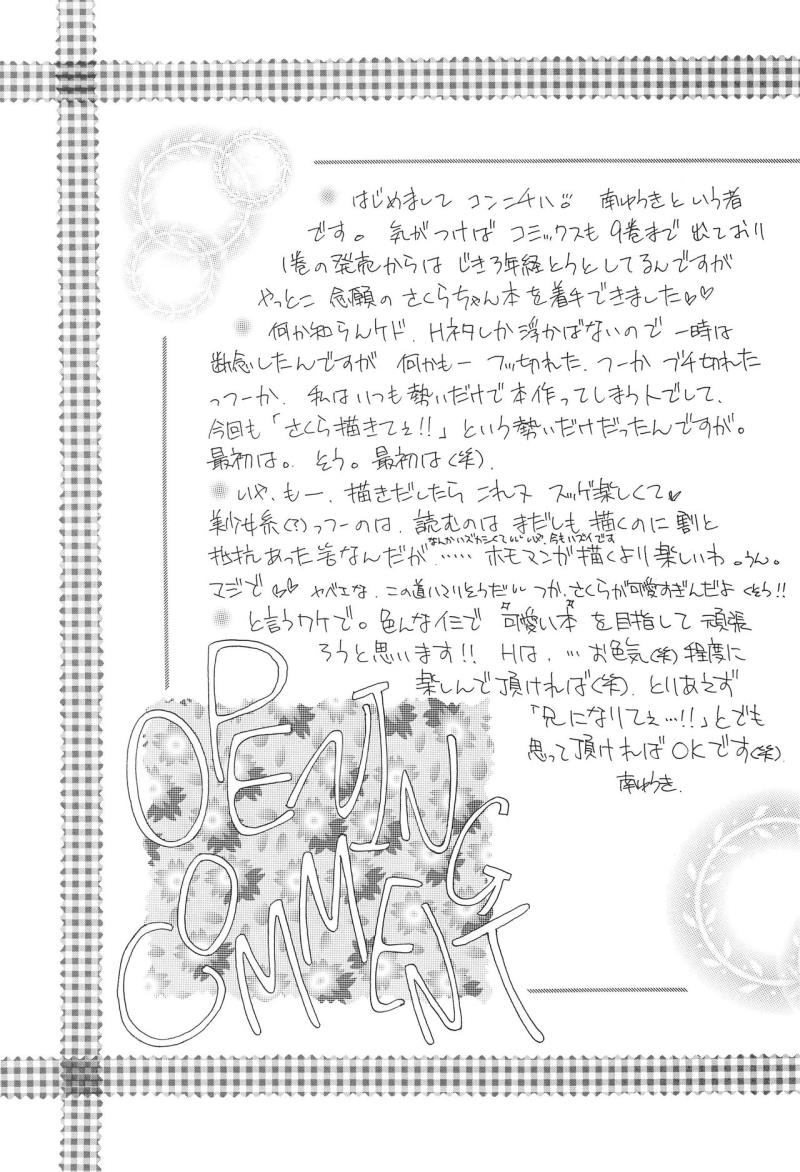 はじめまして コンニチハ 南ゆうきという者
です。気がつけば コミックスも 9巻まで 出ており
1巻の発売からは じき3年経とうとしてるんですが
やっとこ 念願の さくらちゃん本を着手できました♡♡
何か知らんケド、Hネタしか浮かばないので 一時は
断念したんですが 何かもー フッ切れた、つーか ブチ切れた
っつーか、私はいつも勢いだけで本作ってしまう人でして、
今回も「さくら描きてぇ!!」という勢いだけだったんですが。
最初は。そう。最初は(笑)。
いや、もー、描きだしたら これァ スッゲ楽しくて♡
美少女系(?)っつーのは、読むのは まだしも 描くのに 割と
なんかハズかしくて いや、今もハズイです
抵抗あった筈なんだが、…… ホモマンガ描くより楽しいわ。うん。
マジで♡♡ ヤベエな、この道ハマリそうだい つか、さくらが可愛すぎんだよ くそう!!
と言うワケで。色んなイミで 可愛い本 を目指して 頑張
ろうと思います!! Hは、… お色気(笑)程度に
楽しんで頂ければ(笑)、とりあえず
「兄になりてぇ…!!」とでも
思って頂ければOKです(笑)。
南ゆうき.
OPENING
COMMENT